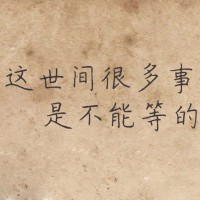 这世间很多事
是不能等的